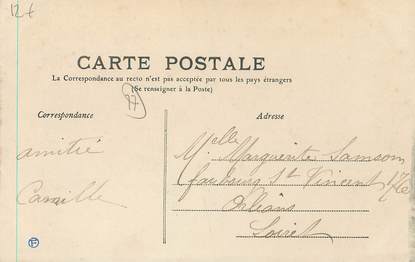 12 €
CARTE POSTALE
La Correspondance au recto n'est pas acceptée par tous les pays étrangers
(Se renseigner à la Poste)
87
Correspondance
Adresse
amitié
Camille
Melle Marguerite Samson
faubourg St Vincent 176
Orléans
Loiret